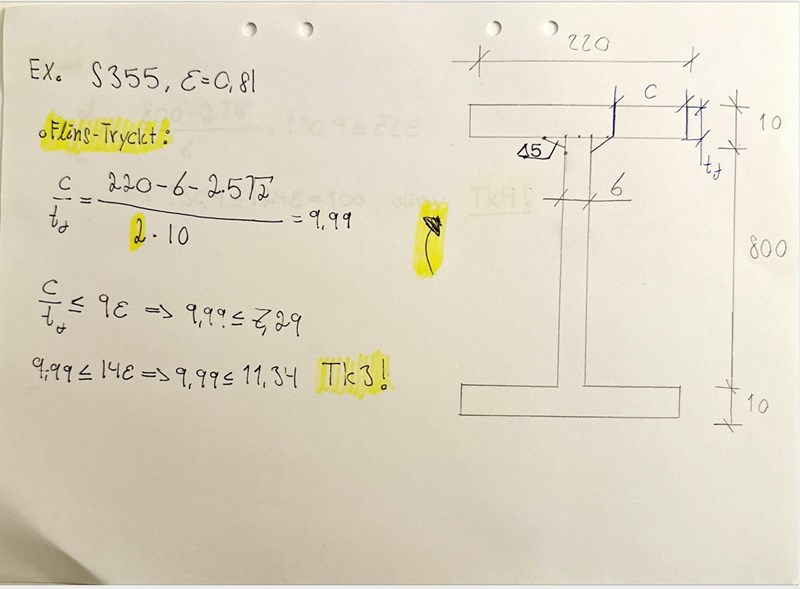 Ex. S355, ε=0,81
Flins-Tryckt:
c/t_f = (220-6-2·5√2)/(2·10) = 9,99
c/t_f ≤ 9ε => 9,99 ≤ 7,29
9,99 ≤ 14ε => 9,99 ≤ 11,34 Tk3!
220
c
10
△5
t_f
6
800
10